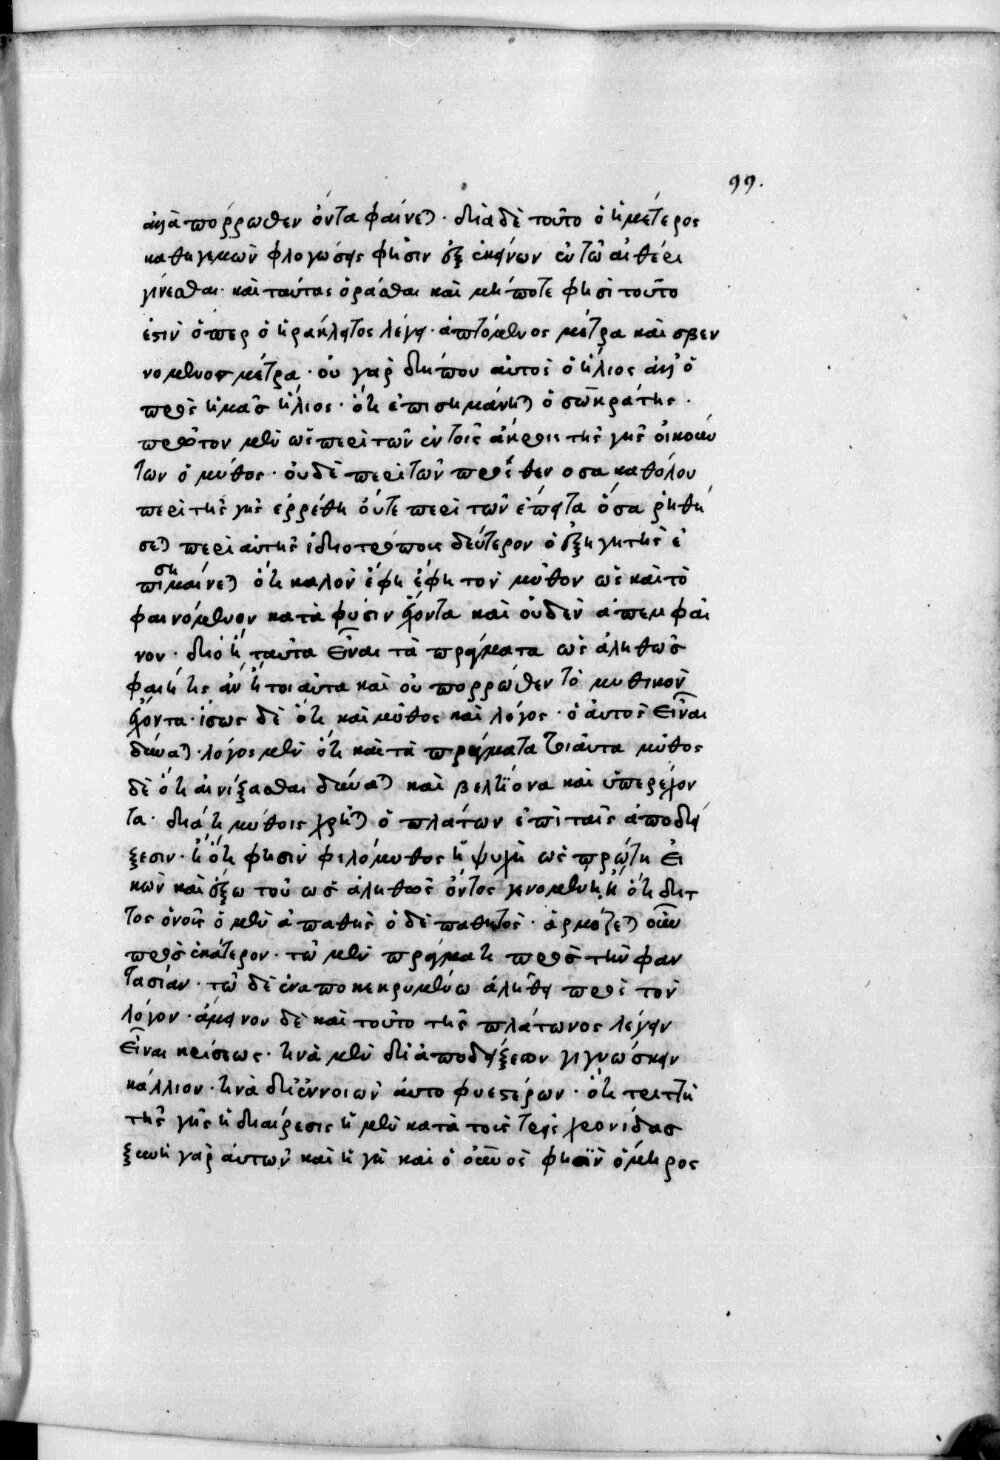 99.
ἀλλὰ πόρρωθεν ὄντα φαίνεται · διὰ δὲ τοῦτο ὁ ἡμέτερος
καθηγεμὼν φλογώσεις φησὶν ἐξ ἐκείνων ἐν τῷ αἰθέρι
γίνεσθαι · καὶ ταύτας ὁρᾶσθαι καὶ μήποτε φησὶ τοῦτο
ἐστὶν ὅπερ ὁ ἡράκλειτος λέγει · ἁπτόμενος μέτρα καὶ σβεν
νόμενος μέτρα · οὐ γὰρ δήπου αὐτὸς ὁ ἥλιος ἀλλ' ὁ
πρὸς ἡμᾶς ἥλιος · ὅτι ἐπισημαίνεται ὁ σωκράτης ·
πρῶτον μὲν ὡς περὶ τῶν ἐν τοῖς ἄκροις τῆς γῆς οἰκούν
των ὁ μῦθος · οὐδὲ περὶ τῶν πρόσθεν ὅσα καθόλου
περὶ τῆς γῆς ἐρρέθη οὔτε περὶ τῶν ἔπειτα ὅσα ῥηθή
σεται περὶ αὐτῆς ἰδιοτρόπου δεύτερον ὁ ἐξηγητὴς ἐ
πισημαίνεται ὅτι καλὸν ἔφη ἔφη τὸν μῦθον ὡς καὶ τὸ
φαινόμενον κατὰ φύσιν ἔχοντα καὶ οὐδὲν ἀπεμφαῖ
νον · διό τι ταῦτα εἶναι τὰ πράγματα ὡς ἀληθῶς
φαίη τις ἂν ἢ τοιαῦτα καὶ οὐ πόρρωθεν τὸ μυθικὸν
ἔχοντα · ἴσως δὲ ὅτι καὶ μῦθος καὶ λόγος · ὁ αὐτὸς εἶναι
δύναται · λόγος μὲν ὅτι καὶ τὰ πράγματα τοιαῦτα μῦθος
δὲ ὅτι αἰνίξασθαι δύναται καὶ βελτίονα καὶ ὑπερέχον
τα · διὰ τί μύθοις χρῆται ὁ πλάτων ἐπὶ ταῖς ἀποδεί
ξεσιν · ἢ ὅτι φησὶν φιλόμυθος ἡ ψυχὴ ὡς πρώτη εἰ
κὼν καὶ ἔξω τοῦ ὡς ἀληθῶς ὄντος γενομένη, ἢ ὅτι διτ
τὸς ὁ νοῦς ὁ μὲν ἀπαθὴς ὁ δὲ παθητός · ἁρμόζεται οὖν
πρὸς ἑκάτερον · τῷ μὲν πράγματι πρὸς τὴν φαν
τασίαν · τῷ δὲ ἐναποκεκρυμμένῳ ἀληθεῖ πρὸς τὸν
λόγον · ἄμεινον δὲ καὶ τοῦτο τῆς πλάτωνος λέγειν
εἶναι κρίσεως · τινὰ μὲν δι' ἀποδείξεων γιγνώσκειν
κάλλιον · τινὰ δι' ἐννοιῶν αὐτοφυεστέρων · ὅτι τριττὴ
τῆς γῆς ἡ διαίρεσις ἡ μὲν κατὰ τοὺς τρεῖς χρονίδας
ξυνὴ γὰρ αὐτῶν καὶ ἡ γῆ καὶ ὁ οὐρανὸς φησὶν ὅμηρος